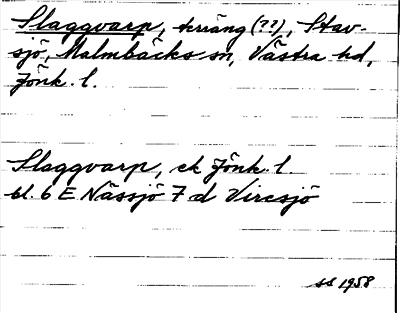 Slaggvarp, terräng (??), Stav-
sjö, Malmbäcks sn, Västra hd,
Jönk. l.
Slaggvarp, ek Jönk. l.
bl. 6 E Nässjö 7 d Viresjö
SS 1958